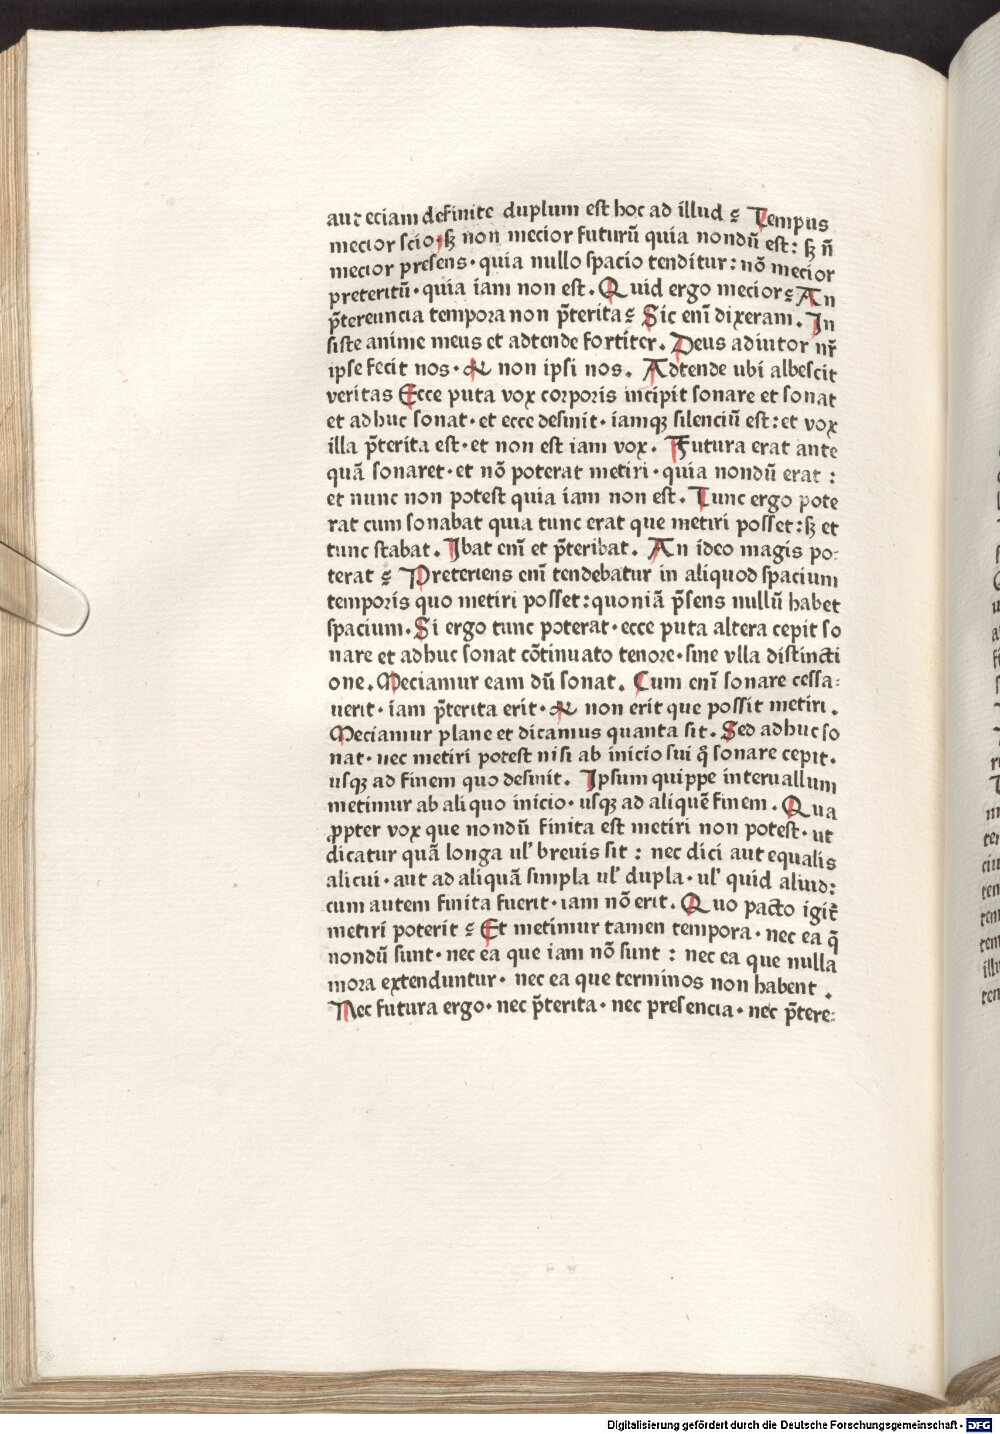 aut eciam definite duplum est hoc ad illud ⸗ Tempus
mecior scio·ꝫ non mecior futurū quia nondū est: ꝫ n̄
mecior presens· quia nullo spacio tenditur: nō mecior
preteritū· quia iam non est. Quid ergo mecior⸗ An
p̄tereuncia tempora non p̄terita⸗ Sic enī dixeram. In
siste anime meus et adtende fortiter. Deus adiutor nr̄
ipse fecit nos· & non ipsi nos. Adtende ubi albescit
veritas Ecce puta vox corporis incipit sonare et sonat
et adhuc sonat· et ecce desinit· iamqꝫ silenciū est: et vox
illa p̄terita est· et non est iam vox. Futura erat ante
quā sonaret· et nō poterat metiri· quia nondū erat :
et nunc non potest quia iam non est. Tunc ergo pote
rat cum sonabat quia tunc erat que metiri posset: ꝫ et
tunc stabat. Ibat enī et p̄teribat. An ideo magis po⸗
terat ⸗ Preteriens enī tendebatur in aliquod spacium
temporis quo metiri posset: quoniā p̄sens nullū habet
spacium. Si ergo tunc poterat· ecce puta altera cepit so
nare et adhuc sonat cōtinuato tenore· sine vlla distincti
one. Meciamur eam dū sonat. Cum enī sonare cessa⸗
uerit· iam p̄terita erit· & non erit que possit metiri.
Meciamur plane et dicamus quanta sit. Sed adhuc so
nat· nec metiri potest nisi ab inicio sui q̄ sonare cepit.
usqꝫ ad finem quo desinit. Ipsum quippe interuallum
metimur ab aliquo inicio· usqꝫ ad aliquē finem. Qua
ꝓpter vox que nondū finita est metiri non potest· ut
dicatur quā longa ul' breuis sit : nec dici aut equalis
alicui· aut ad aliquā simpla ul' dupla· ul' quid aliud:
cum autem finita fuerit· iam nō erit. Quo pacto igit̄
metiri poterit ⸗ Et metimur tamen tempora· nec ea q̄
nondū sunt· nec ea que iam nō sunt : nec ea que nulla
mora extenduntur· nec ea que terminos non habent .
Nec futura ergo· nec p̄terita· nec presencia· nec p̄tere⸗
Digitalisierung gefördert durch die Deutsche Forschungsgemeinschaft - DFG